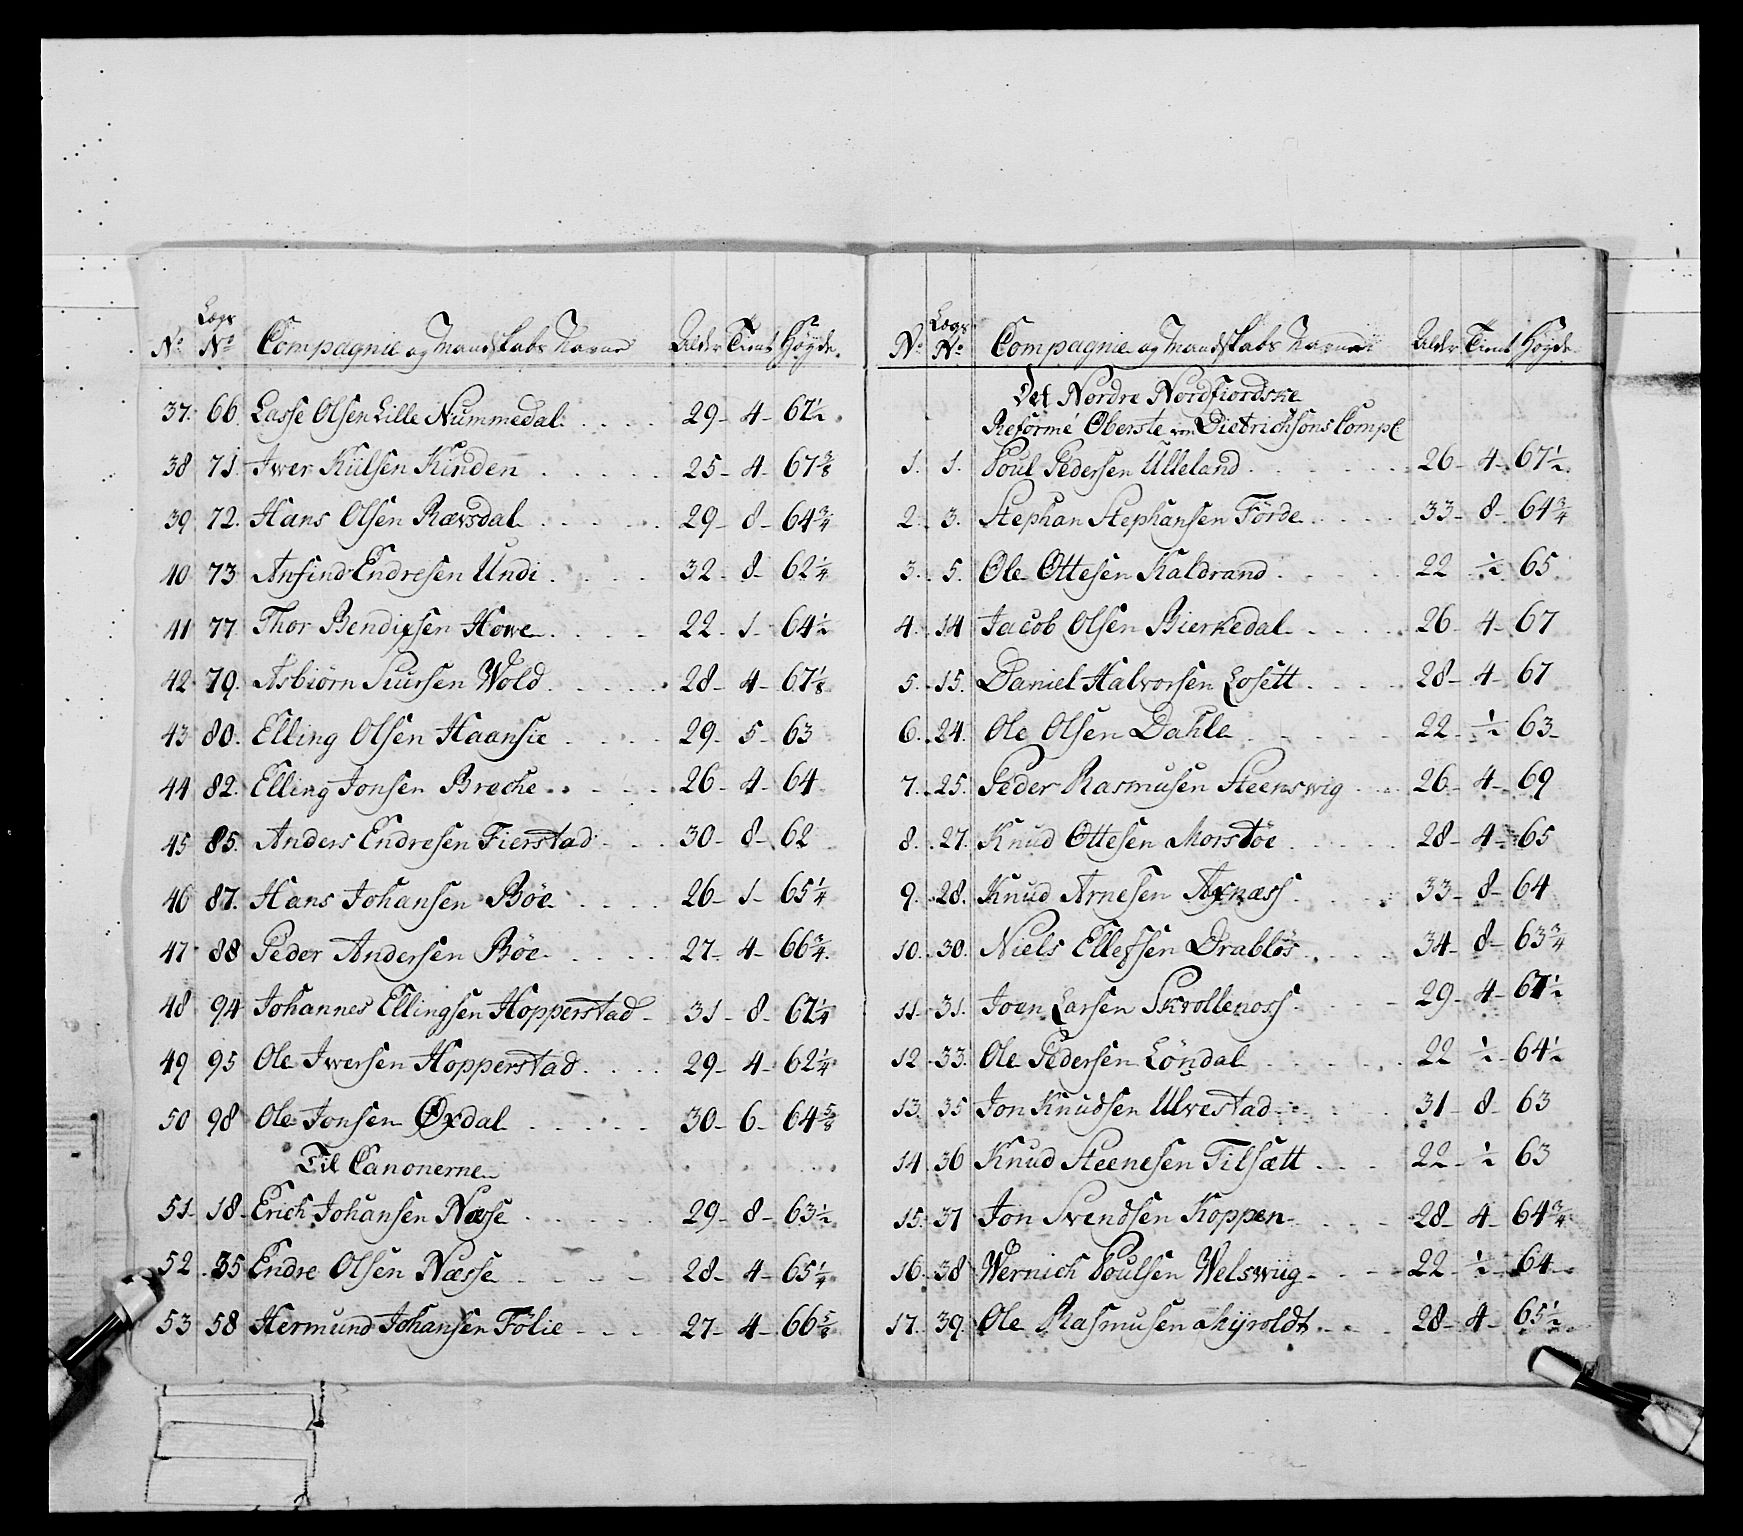 No Lægs No Compagnie og Mandskabs Navne Alder Tient Høyde
37. 66. Lasse Olsen Lille Nummedal 29 - 4 - 67½
38 71. Iwer Kiilsen Kinden 25 - 4 - 67⅜
39. 72. Hans Olsen Rævsdal 29 - 8 - 64¾
40 73 Anfind Endresen Undi 32 - 8 - 62¼
41 77 Thor Bendixsen Howe 22 - 1 - 64½
42 79. Asbiörn Siursen Wold 28 - 4 - 67⅛
43 80. Elling Olsen Haansie 29 - 5 - 63
44 82. Elling Jonsen Breche 26 - 4 - 64
45 85. Anders Endresen Fierstad 30 - 8 - 62
46 87. Hans Johansen Böe 26 - 1 - 65¼
47 88 Peder Andersen Böe 27 - 4 - 66¾
48 94 Johannes Ellingsen Hopperstad 31 - 8 - 67¼
49 95 Ole Iwersen Hopperstad 29 - 4 - 62¼
50 98 Ole Jonsen Øxdal 30 - 6 - 64⅝
Til Canonerne
51 - 18 - Erich Johansen Næsse 29 - 8 - 63½
52 35 Endre Olsen Næsse 28 - 4 - 65¼
53 58 Hermund Johansen Fölie 27 - 4 - 66⅝
No Lægs No Compagnie og Mandskabs Navne Alder Tient Høyde
Det Nordre Nordfiordske
Reformé Oberste von Dietrichsons Compe
1. 1. Poul Pedersen Ulleland 26 - 4 - 67½
2. 3. Stephan Stephansen Förde 33 - 8 - 64¾
3. 5. Ole Ottesen Kaldrand 22 ½ 65
4. 14 Jacob Olsen Bierkedal 26 - 4 - 67
5. 15. Daniel Halvorsen Losett 28 - 4 - 67
6. 24. Ole Olsen Dahle 22 - ½ 63
7. 25. Peder Rasmusen Steenswig 26 - 4 - 69
8. 27. Knud Ottesen Morstöe 28 - 4 - 65
9. 28. Knud Arnesen Axnæss 33 - 8 - 64
10. 30. Niels Ellefsen Drablös 34 - 8 - 63¾
11. 31. Joen Larsen Skrolleness 29 - 4 - 67½
12. 33. Ole Pedersen Löndal 22 ½ - 64½
13. 35 Jon Knudsen Ulvestad 31 - 8 - 63
14. 36 Knud Steenesen Tilsætt 22 - ½ 63
15. 37 Jon Svendsen Koppen 28 - 4 - 64¾
16. 38 Wernich Poulsen Welswiig 22 - ½ - 64
17. 39. Ole Rasmusen Myroldt 28 - 4 - 65½